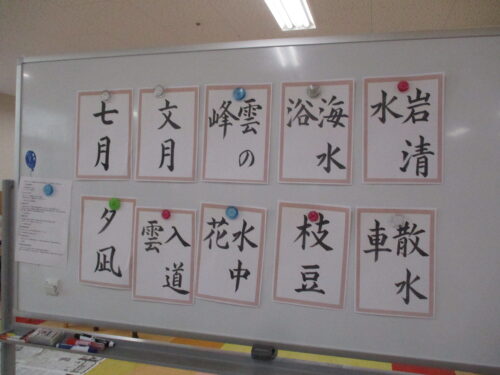 七月
文月
雲の
峰
海水
浴
岩清
水
夕凪
入道
雲
水中
花
枝豆
散水
車